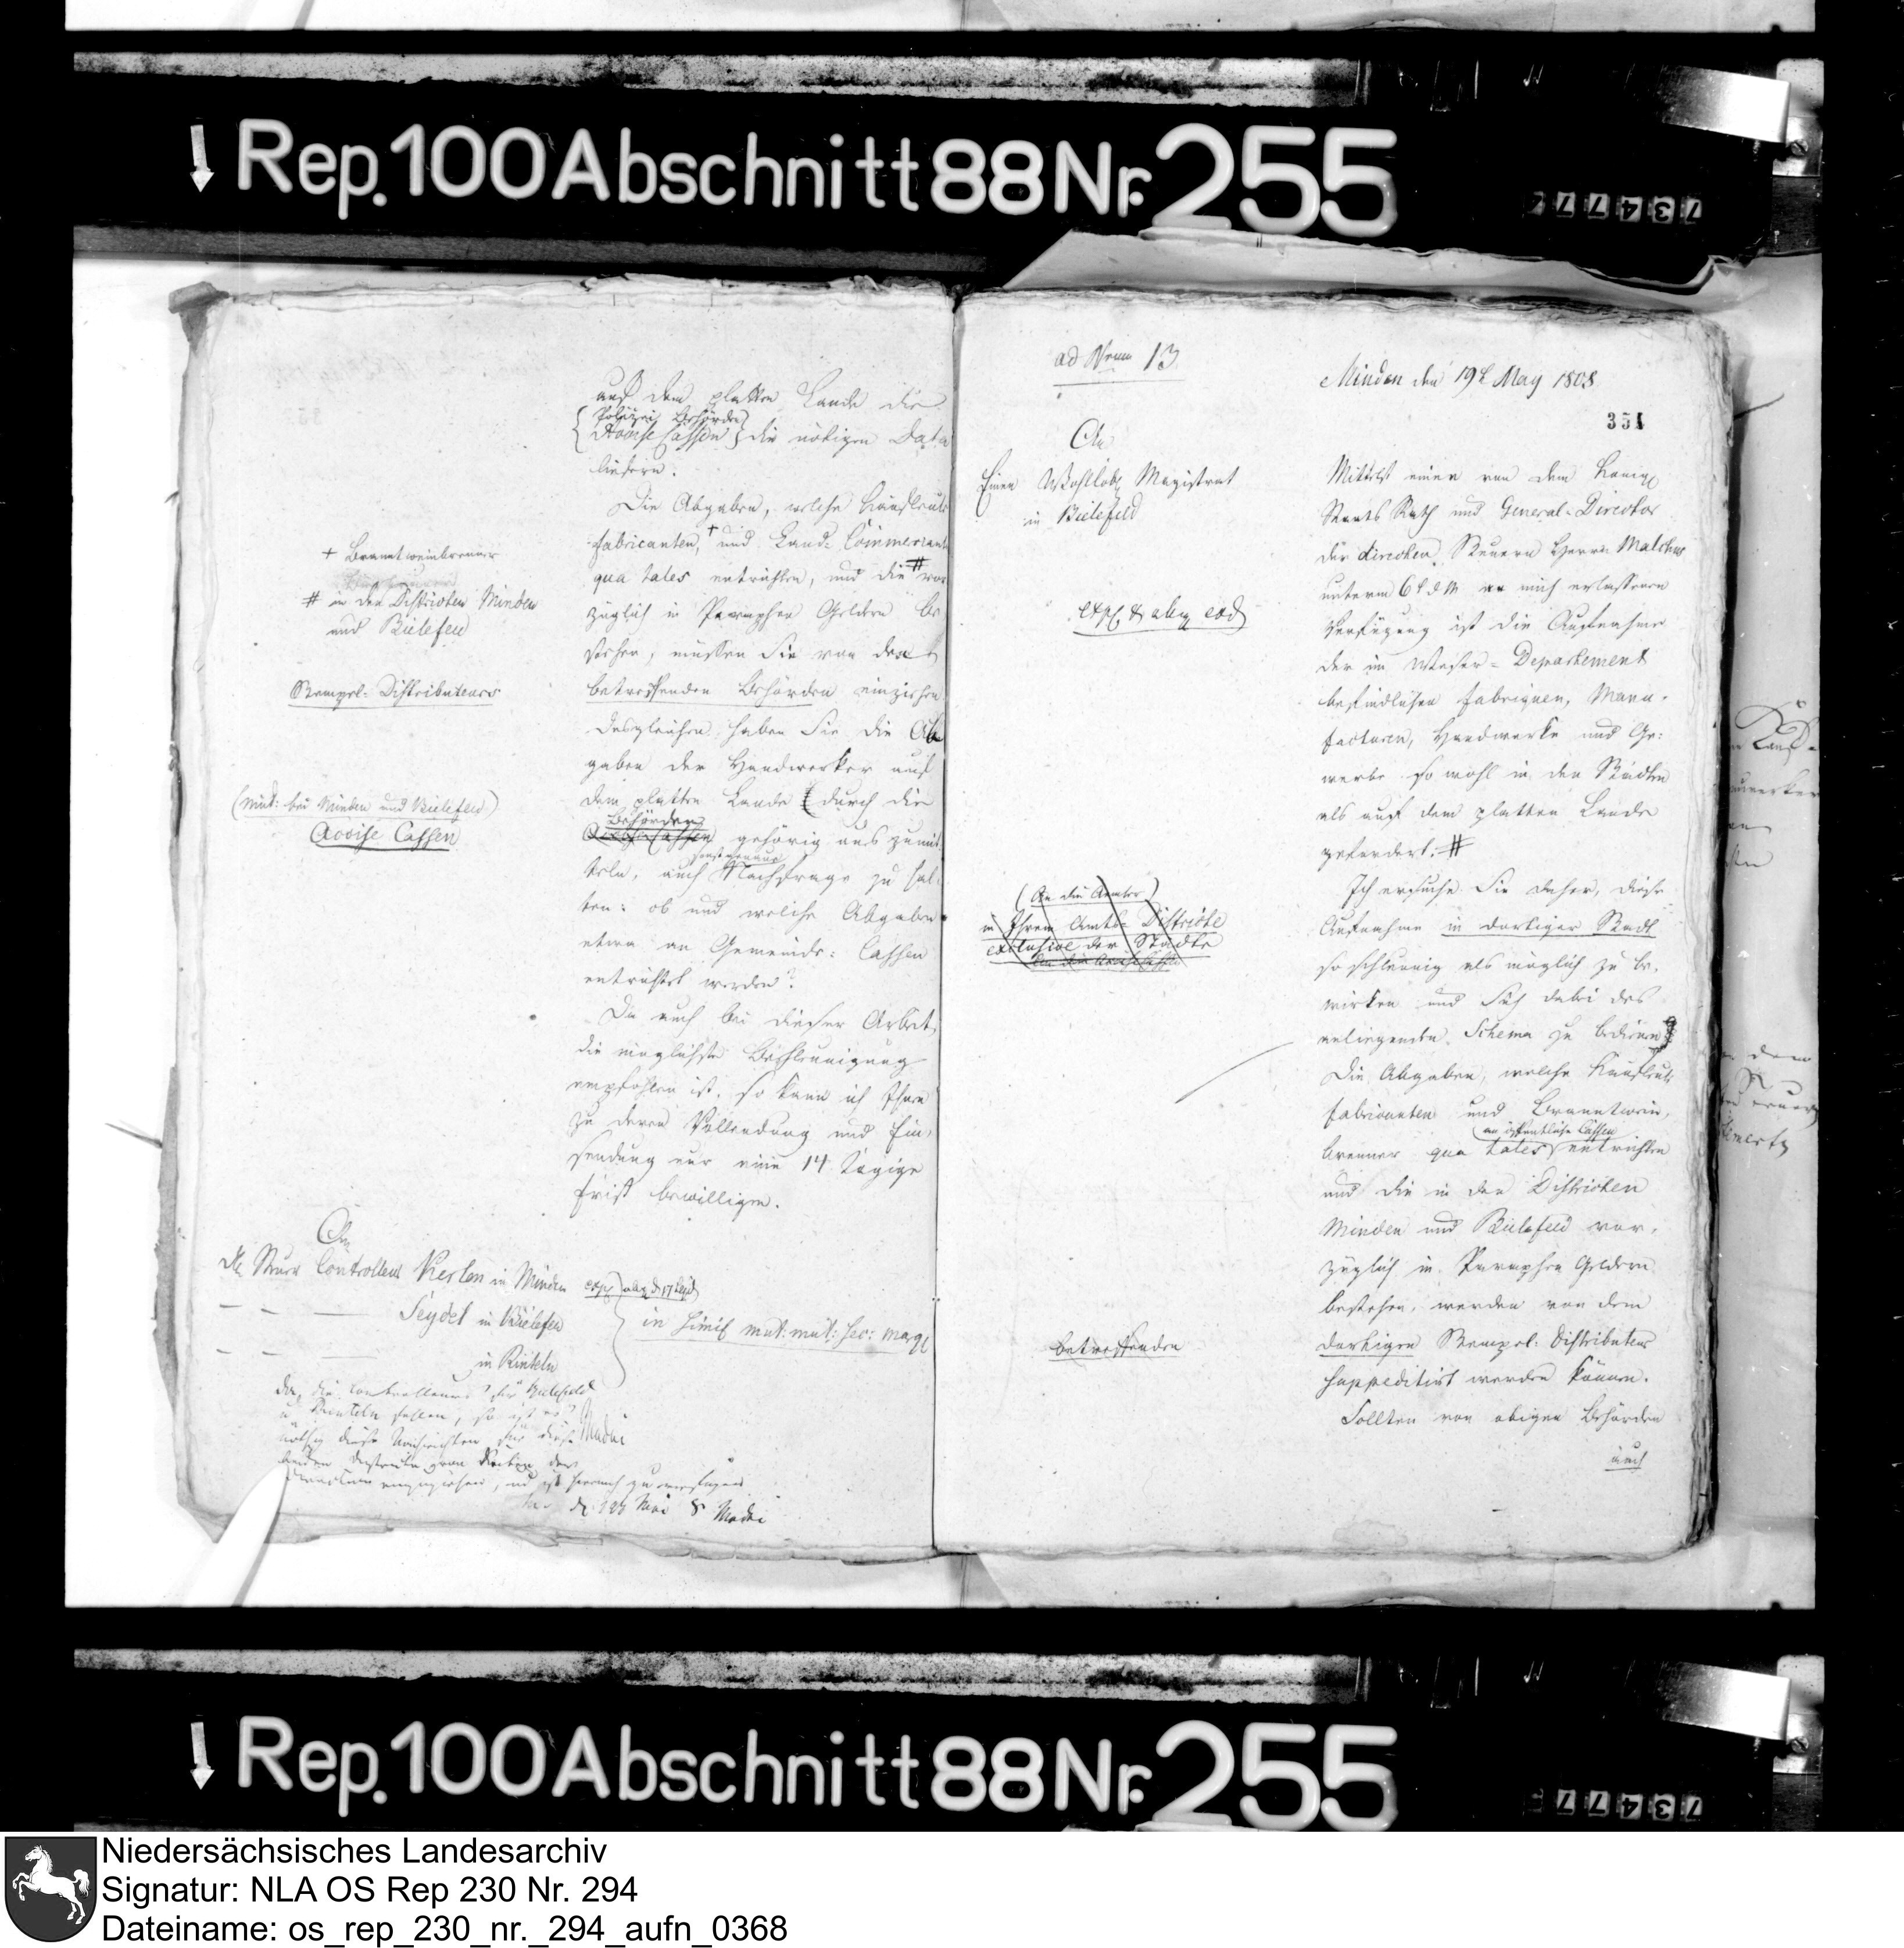 Rep. 100 Abschnitt 88 Nr. 255
734774
auf dem platten Lande die
Polizei Behörden
Accise Cassen die nötigen Data
liefern.
Die Abgaben, welche Kaufleute
Fabricanten, + und Land: Commercianten
qua tales entrichten, und die # vor
züglich in Paraphen Geldern be
stehen, müssen Sie von den
betreffenden Behörden einziehen
Desgleichen haben Sie die Ab
gaben der Handwerker auf
dem platten Lande (durch die
Behörden
Accise Cassen gehörig aus zumit
teln, auch Nachfrage zu hal
ten: ob und welche Abgaben
etwa an Gemeinds: Cassen
entrichtet werden?
Da auch bei dieser Arbeit
die möglichste Beschleunigung
empfohlen ist, so kann ich Ihnen
zu deren Vollendung und Ein
sendung nur eine 14 tägige
Frist bewilligen.
+ Branntweinbrenner
# in den Districten Minden
und Bielefeld
Stempel: Distributeurs
(mut: bei Minden und Bielefeld)
Accise Cassen
An
Steuer Controlleur Kerlen in Minden
Seydel in Bielefeld
in Rinteln
in simili mut: mut: sec: marg
da, die Controlleurs für Bielefeld
u Rinteln fehlen, so ist es
nöthig diese Nachrichten für diese
Madai
Mai 8 Madai
ad Num 13
Minden den 19t May 1808
351
An
Einen Wohllöb Magistrat
in Bielefeld
(An die Aemter)
in Ihrem Amts-Districte
exclusive der Städte
An die Accise Cassen
betreffenden
Mittelst einer von dem Königl
Staats Rath und General-Director
der directen Steuern Herrn Malchus
unterm 6t d M an mich erlassenen
Verfügung ist die Aufnahme
der im Weser-Departement
befindlichen Fabriquen, Manu-
facturen, Handwerke und Ge:
werbe so wohl in den Städten
als auf dem platten Lande
gefordert. #
Ich ersuche Sie daher, diese
Aufnahme in dortiger Stadt
so schleunig als möglich zu be-
wirken und Sich dabei des
anliegenden Schema zu bedienen
Die Abgaben, welche Kaufleute
Fabricanten und Branntwein
an öffentliche Cassen
brenner qua tales entrichten
und die in den Districten
Minden und Bielefeld vor-
züglich in Paraphen Geldern
bestehen, werden von dem
dortigen Stempel: Distributeur
suppeditirt werden können.
Sollten von obigen Behörden
auch
Rep. 100 Abschnitt 88 Nr. 255
73477
Niedersächsisches Landesarchiv
Signatur: NLA OS Rep 230 Nr. 294
Dateiname: os_rep_230_nr._294_aufn_0368